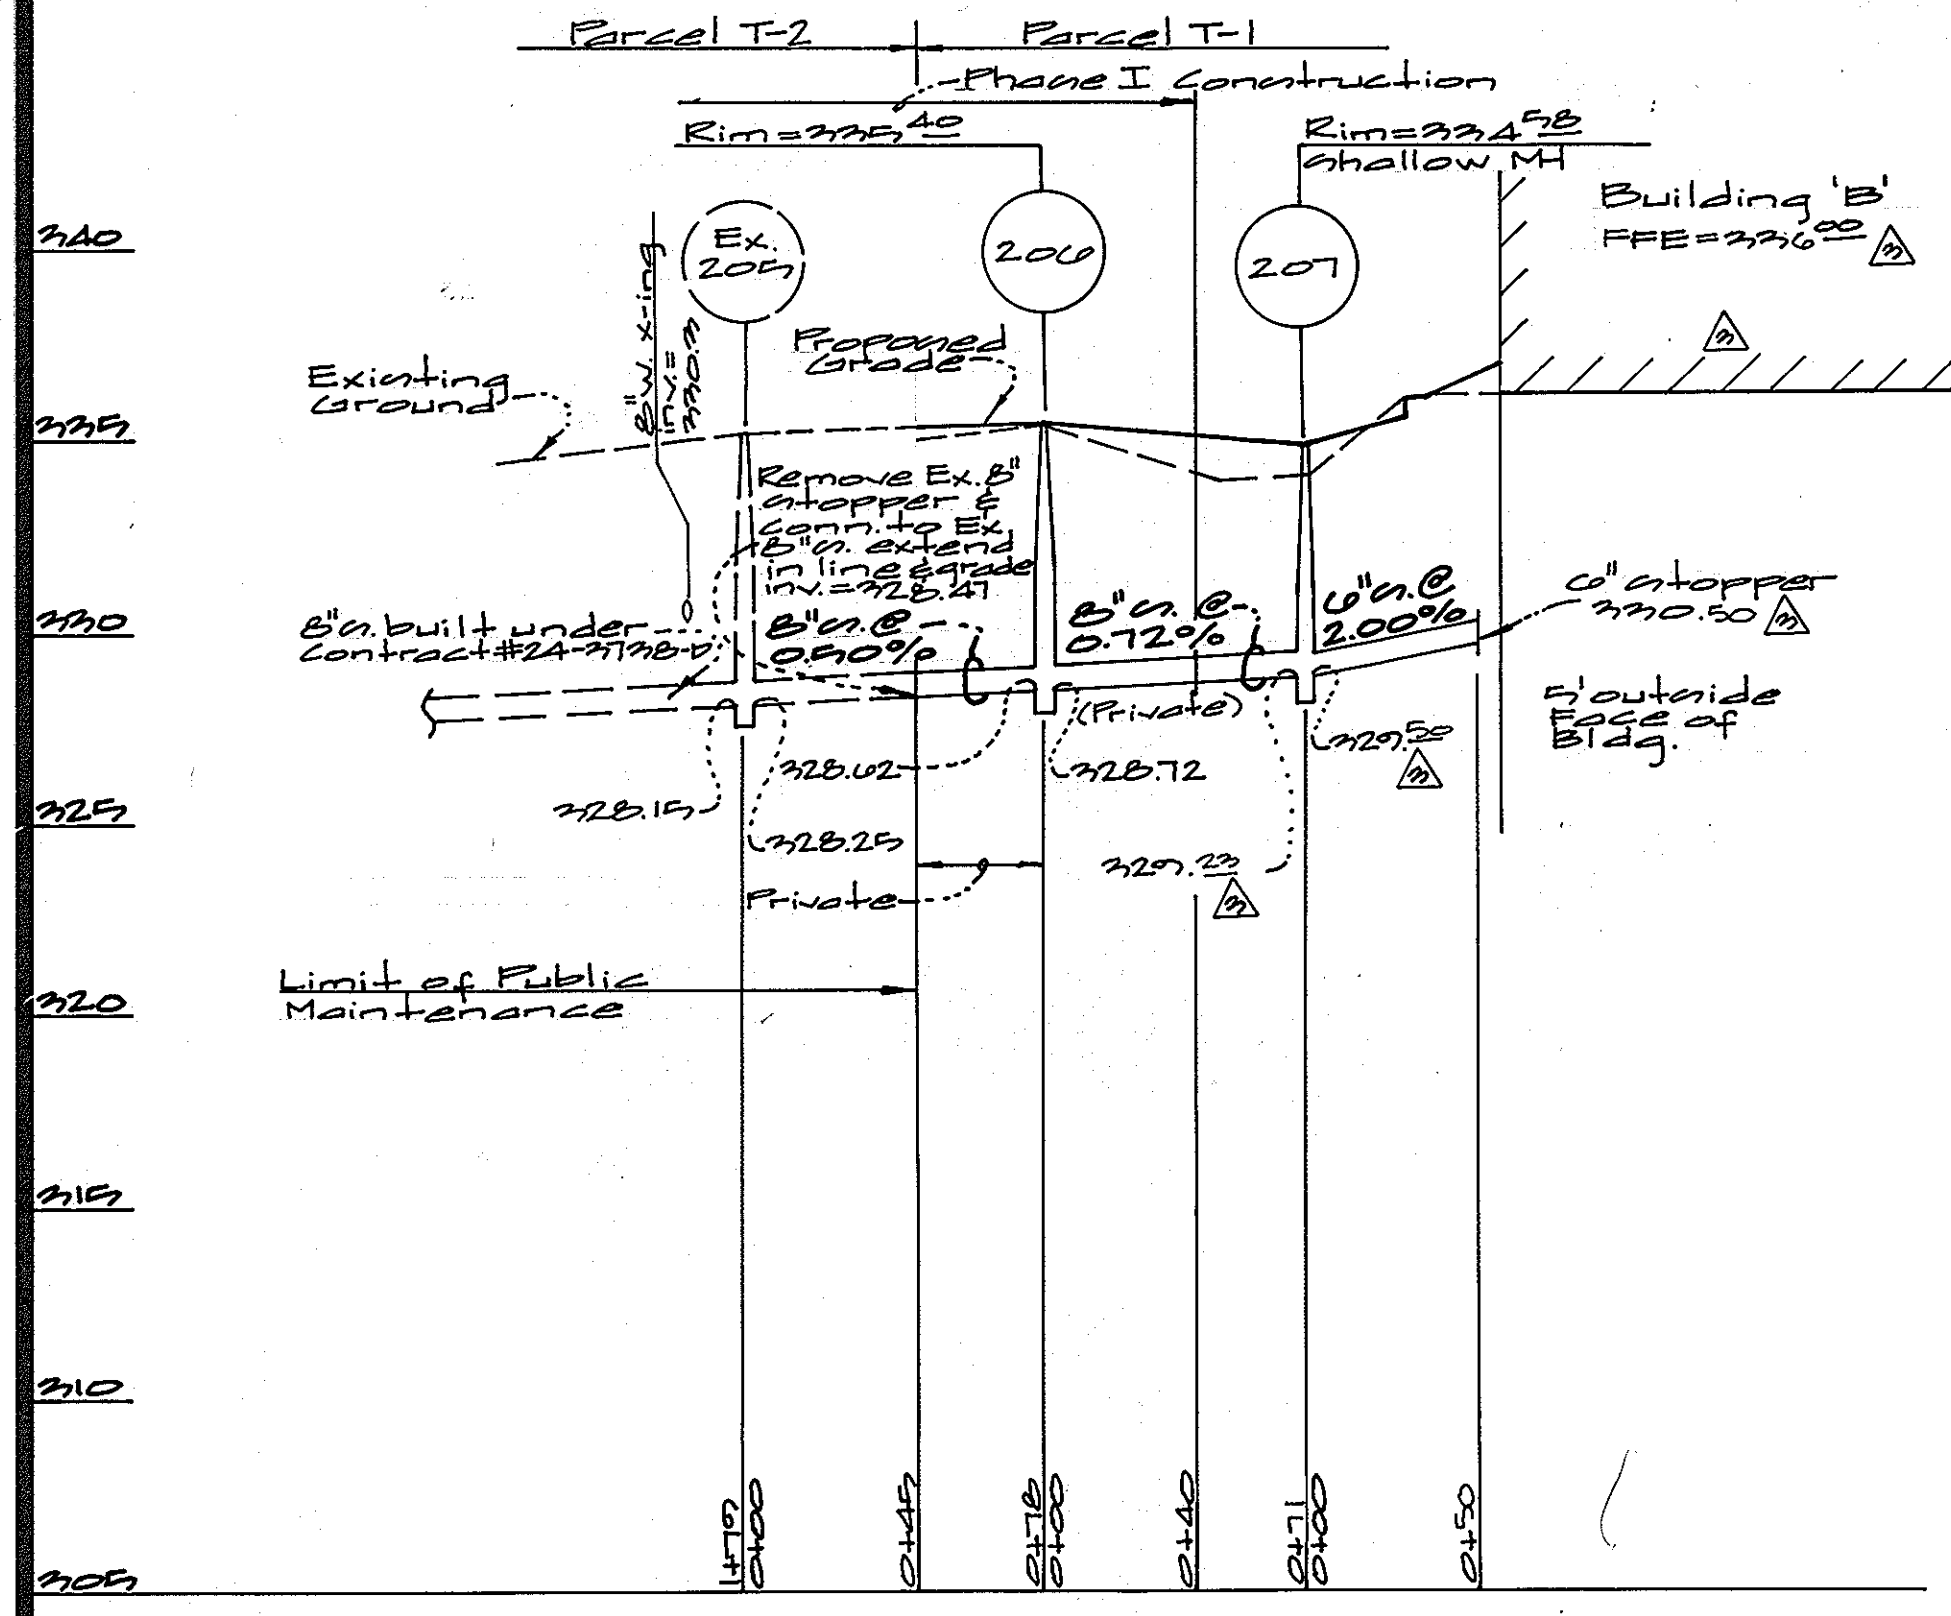 Parcel T-2
Parcel T-1
Phase I Construction
Rim=335.40
Rim=334.58
Shallow MH
Building 'B'
FFE=336.00
3
3
340
Ex.
205
206
207
8"W. x-ing
inv.=
Proposed
Grade
Existing
Ground
335
Remove Ex. 8"
stopper &
conn. to Ex.
8"S. extend
in line & grade
inv.=328.47
330
8"S. built under
Contract #24-3738-D
8"S. @
0.50%
8"S. @
0.72%
6"S. @
2.00%
6" stopper
330.50
3
(Private)
5' outside
Face of
Bldg.
329.50
3
328.62
328.72
325
328.15
328.25
329.23
3
Private
Limit of Public
Maintenance
320
315
310
305
1+79
0+00
0+45
0+78
0+00
0+40
0+71
0+00
0+50